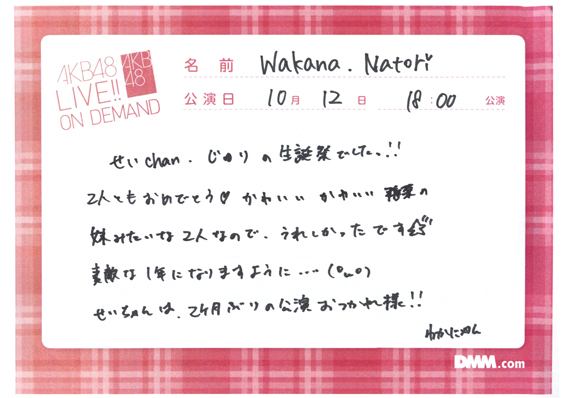 AKB48
LIVE!!
ON DEMAND
AKB
48
名前 Wakana. Natori
公演日 10月 12日 18:00 公演
せいchan. じゅりの生誕祭でしたっ!!
2人ともおめでとう♡ かわいい かわいい 若菜の
妹みたいな2人なので、うれしかったです☆
素敵な1年になりますように…. (oᴗo)
せいちゃんは、2ヶ月ぶりの公演おつかれ様!!
わかにゃん
DMM.com